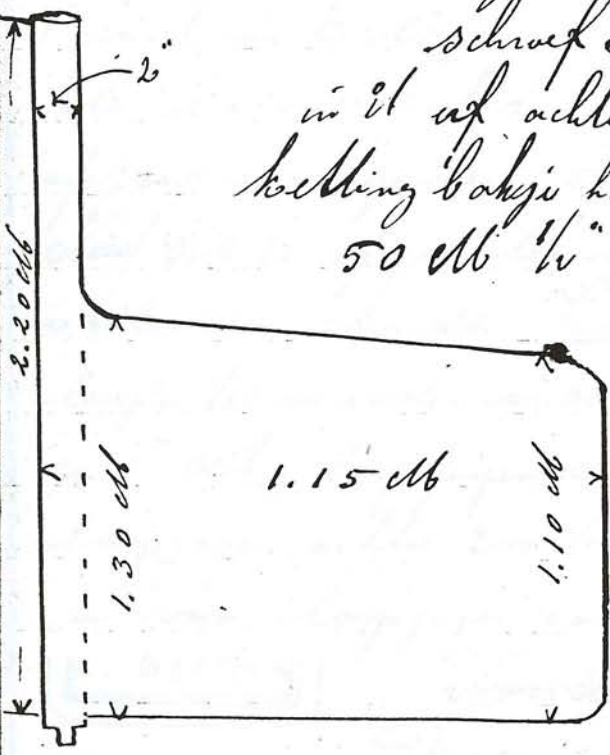 schroef
in 't achte
ketting bakje h
50 M ½"
2"
2.20 M
1.30 M
1.15 M
1.10 M